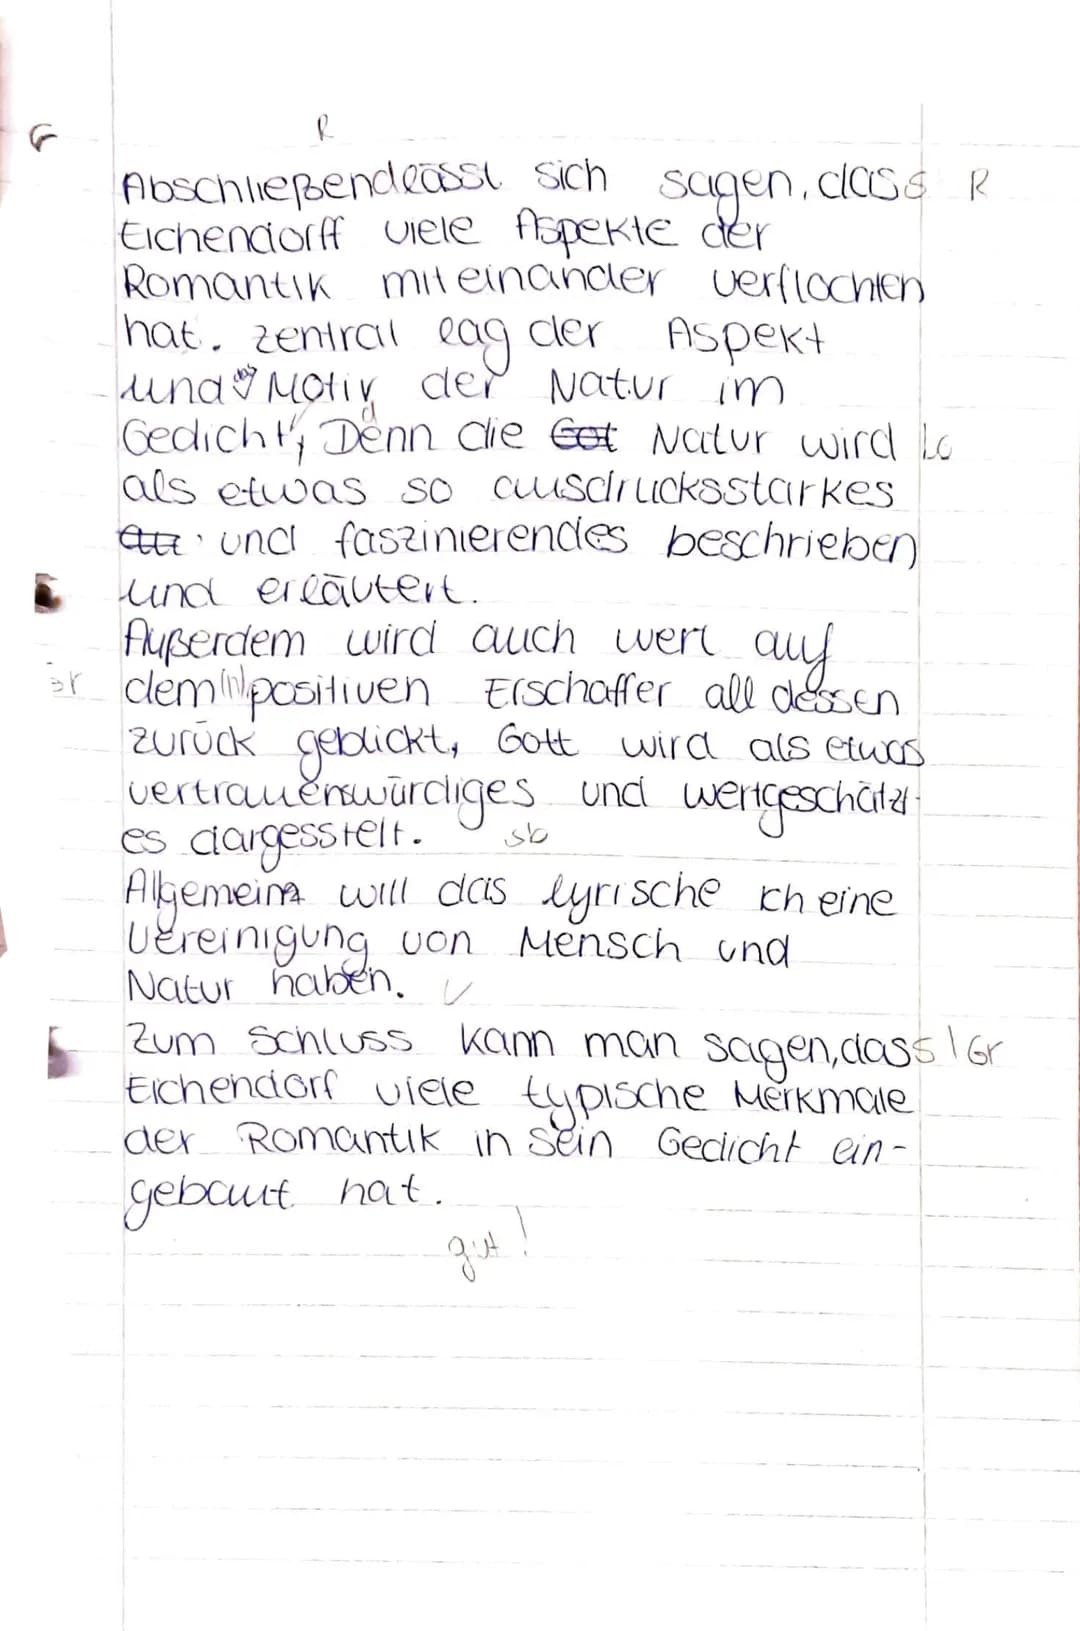 R
Abschließend lässt sich sagen, dass R
Eichendorff viele Aspekte der
Romantik miteinander verflochten
hat. Zentral lag der Aspekt
und Motiv der Natur im
Gedicht, Denn die Got Natur wird
als etwas so ausdrucksstarkes
und faszinierendes beschrieben
und erläutert.
Außerdem wird auch wert auf
dem (n) positiven Erschaffer all dessen
zurück geblickt, Gott wird als etwas
vertrauenswürdiges und wertgeschätzt-
es dargesstelt. sb
Allgemein will das lyrische Ich eine
Vereinigung von Mensch und
Natur haben. ✓
Zum Schluss kann man sagen, dass Gr
Eichendorf viele typische Merkmale
der Romantik in sein Gedicht ein-
gebaut hat.
gut!